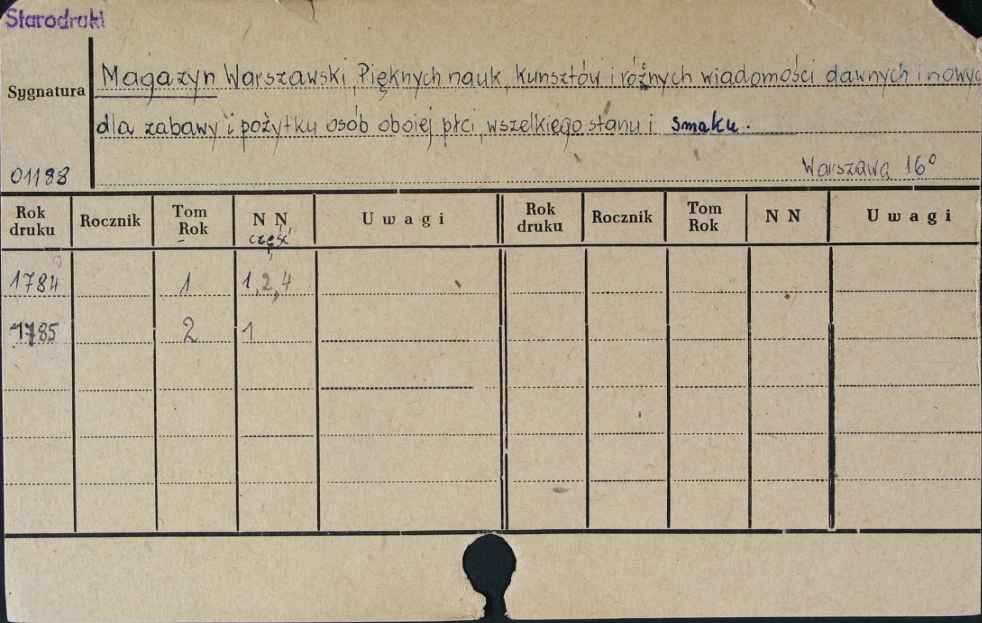 Starodruki
Magazyn Warszawski, Pięknych nauk, kunsztów i różnych wiadomości dawnych i nowyc
Sygnatura
dla zabawy i pożytku osób obojej płci, wszelkiego stanu i smaku.
01188 Warszawa 16°
Rok druku Rocznik Tom Rok N N część Uwagi Rok druku Rocznik Tom Rok N N Uwagi
1784 1 1,2,4
1785 2 1